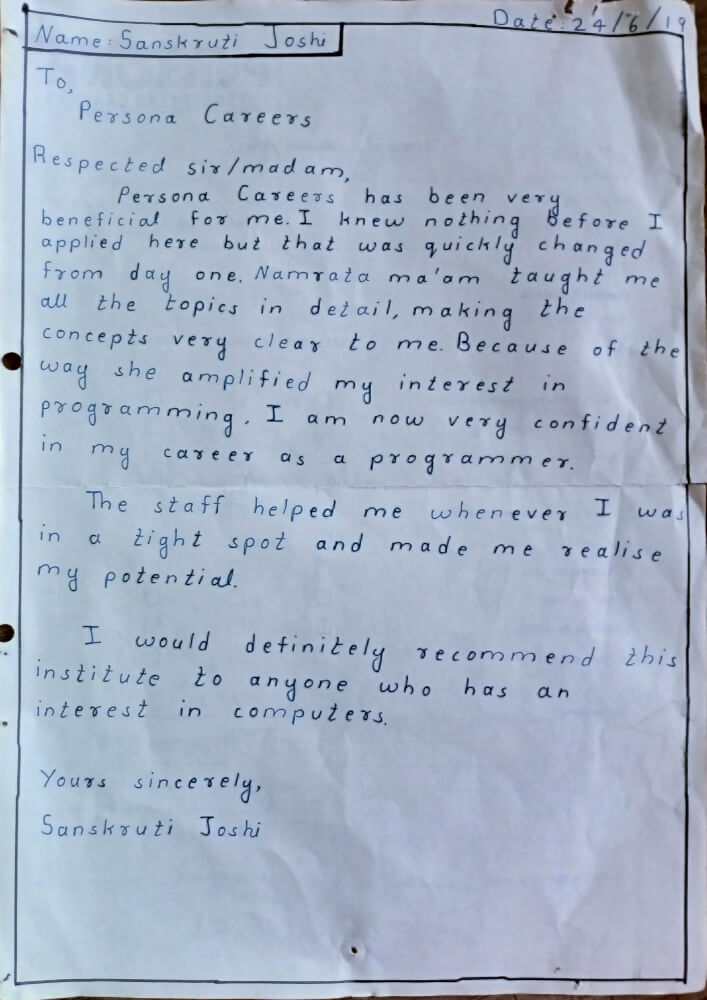 Date: 24/6/19
Name: Sanskruti Joshi
To,
Persona Careers
Respected sir/madam,
Persona Careers has been very
beneficial for me. I knew nothing before I
applied here but that was quickly changed
from day one. Namrata ma'am taught me
all the topics in detail, making the
concepts very clear to me. Because of the
way she amplified my interest in
programming, I am now very confident
in my career as a programmer.
The staff helped me whenever I was
in a tight spot and made me realise
my potential.
I would definitely recommend this
institute to anyone who has an
interest in computers.
Yours sincerely,
Sanskruti Joshi